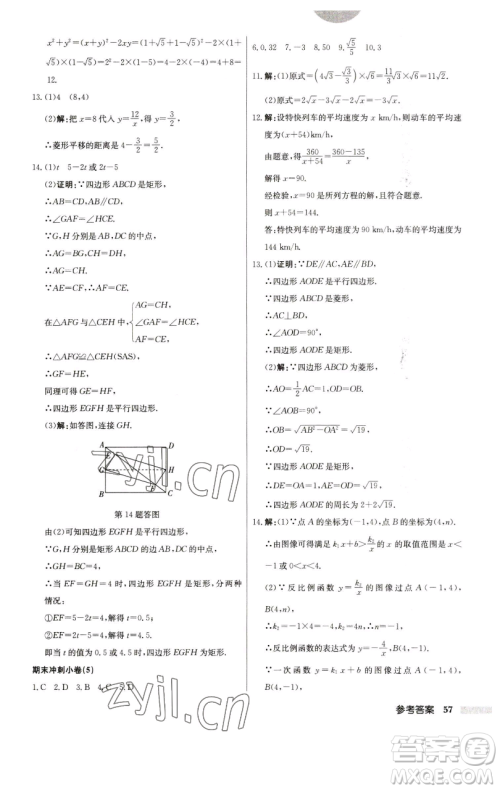 x²+y²=(x+y)²-2xy=(1+√5+1-√5)²-2(1+
√5)×(1-√5)=2²-2×(1-5)=4-2×(-4)=4+8=
12.
13.(1)4 (8,4)
(2)解:把x=8代入y=12/x,得y=3/2,
∴菱形平移的距离是4-3/2=5/2.
14.(1)t 5-2t或2t-5
(2)证明:∵四边形ABCD是矩形,
∴AB=CD,AB∥CD,AD∥BC,
∴∠GAF=∠HCE.
∵G,H分别是AB,DC的中点,
∴AG=BG,CH=DH,
∴AG=CH.
∵AE=CF,∴AF=CE.
在△AFG与△CEH中,{AG=CH,
∠GAF=∠HCE,
AF=CE,
∴△AFG≌△CEH(SAS),
∴GF=HE.
同理可得GE=HF.
∴四边形EGFH是平行四边形.
(3)解:如图所示,连接GH.
A D
G H
B C
第14题答图
由(2)可知四边形EGFH是平行四边形,
∵点G,H分别是矩形ABCD的边AB,DC的中点,
∴GH=BC=4,
∴当EF=GH=4时,四边形EGFH是矩形,分两种
情况:
①EF=5-2t=4,解得t=0.5;
②EF=2t-5=4,解得t=4.5.
即当t的值为0.5或4.5时,四边形EGFH是矩形.
期末冲刺小卷(5)
1.C 2.D 3.B 4.C 5.D
6.0.32 7.-3 8.50 9.√5/5 10.3
12.解:设特快列车的平均速度为x km/h,则动车的速度
为(x+54)km/h,
由题意,得360/(x+54)=(360-135)/x,
解得x=90.
经检验,x=90是所列方程的解.
则x+54=144.
答:特快列车的平均速度为90 km/h,动车的平均速度为
144 km/h.
13.(1)证明:∵DE∥AC,AE∥BD,
∴四边形AODE是平行四边形.
∵四边形ABCD是菱形,
∴AC⊥BD,
∴∠AOD=90°,
∴四边形AODE是矩形.
(2)解:∵四边形ABCD为菱形,
∴AO=1/2AC=1,OD=OB.
∵∠AOB=90°,
∴OB=√(AB²-OA²)=√19,
∴OD=√19.
∵四边形AODE是矩形,
∴DE=OA=1,AE=OD=√19,
∴四边形AODE的周长为2+2√19.
14.解:(1)∵点A的坐标为(-1,4),点B的坐标为(4,n).
∴由图像可得满足k₁x+b>k₂/x的x的取值范围是x<
-1或0<x<4.
(2)∵反比例函数y=k₂/x的图像过点A(-1,4),
B(4,n),
∴k₂=-1×4=-4,k₂=4n,
∴n=-1,
∴B(4,-1),y=-4/x.
∵一次函数y=k₁x+b的图像过点A(-1,4),
参考答案 57
zyjl.cn
答案圈
MXQE.COM